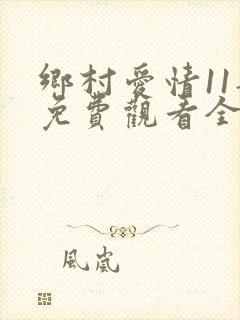 鄉村愛情11
免費觀看全
風嵐